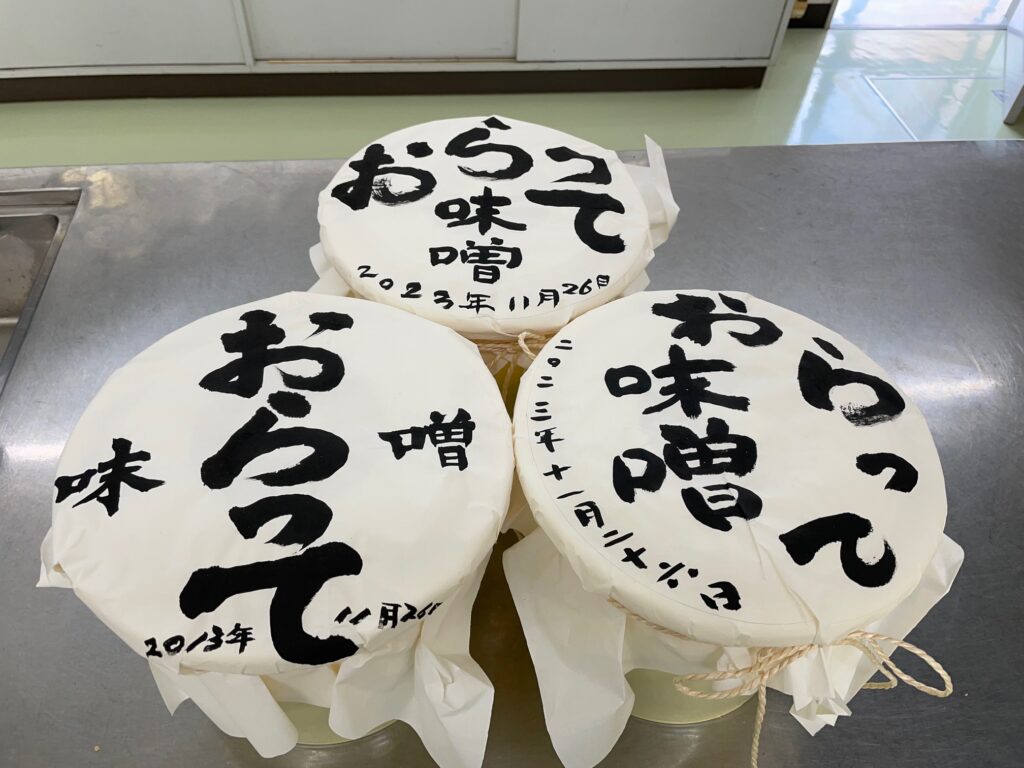 おらって
味噌
2023年11月26日
おらって
味噌
2013年 11月26日
おらって
お味噌
二〇二三年十一月二十六日